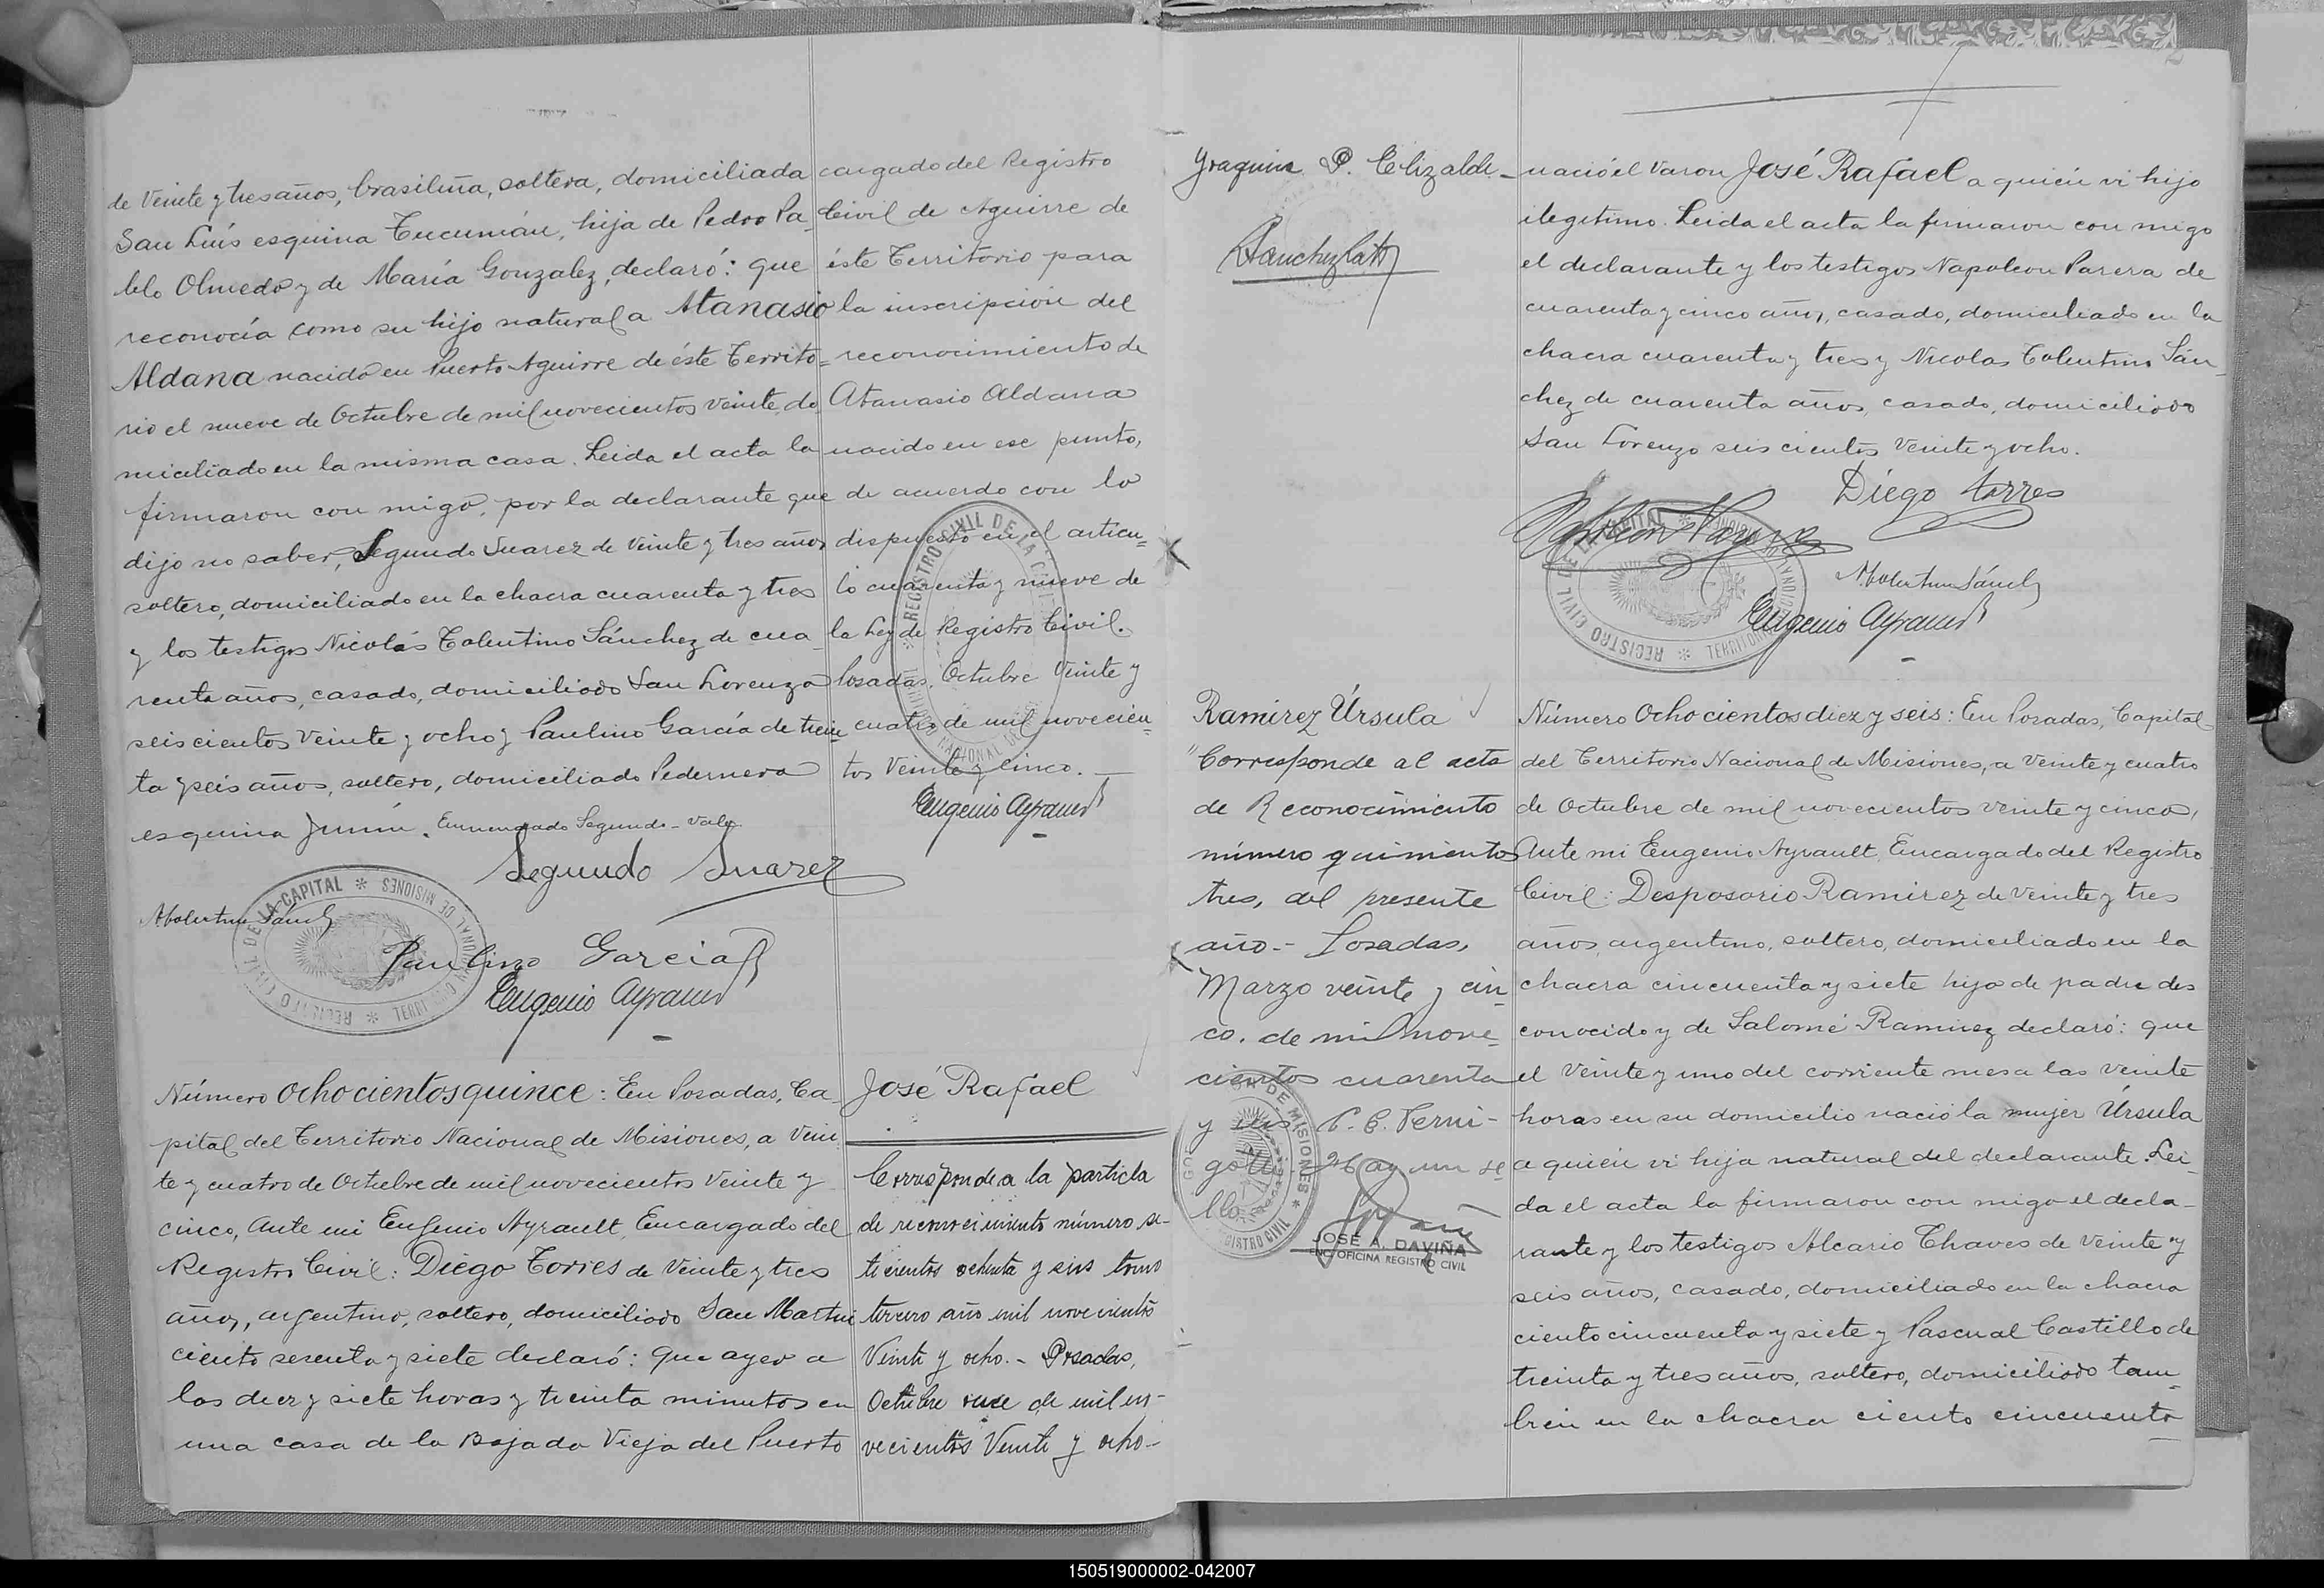 de Veinte y tres años, brasileña, soltera, domiciliada
San Luis esquina Tucumán, hija de Pedro Pa-
blo Olmedo y de María Gonzalez, declaró: que
reconocía como su hijo natural a Atanasio
Aldana nacido en Puerto Aguirre de éste Territo-
rio el nueve de Octubre de mil novecientos veinte, do
miciliado en la misma casa. Leida el acta la
firmaron con migo, por la declarante que
dijo no saber, Segundo Suarez de veinte y tres años
soltero, domiciliado en la chacra cuarenta y tres
y los testigos Nicolás Tolentino Sánchez de cua
renta años, casado, domiciliado San Lorenzo
seiscientos veinte y ocho y Paulino García de trein
ta y seis años, soltero, domiciliado Pedernera
esquina Junin. Enmendado Segundo - Vale
Segundo Suarez
Paulino Garcia
Eugenio Ayrault
REGISTRO CIVIL DE LA CAPITAL * TERRITORIO NACIONAL DE MISIONES *
cargado del Registro
Civil de Aguirre de
éste Territorio para
la inscripción del
reconocimiento de
Atanasio Aldana
nacido en ese punto,
de acuerdo con lo
dispuesto en el articu-
lo cuarenta y nueve de
la Ley de Registro Civil.
Posadas, Octubre Veinte y
cuatro de mil novecien-
tos Veinte y cinco.
Eugenio Ayrault
Número Ochocientos quince: En Posadas, Ca
pital del Territorio Nacional de Misiones, a Vein
te y cuatro de Octubre de mil novecientos Veinte y
cinco, Ante mi Eugenio Ayrault, Encargado del
Registro Civil: Diego Torres de Veinte y tres
años, argentino, soltero, domiciliado San Martin
ciento sesenta y siete declaró: que ayer a
las diez y siete horas y treinta minutos en
una casa de la Bajada Vieja del Puerto
José Rafael
Corresponde a la partida
de reconocimiento número se-
tecientos ochenta y seis tomo
tercero año mil novecientos
Veinte y ocho. - Posadas,
Octubre once de mil no-
vecientos Veinte y ocho -
Joaquin P. Elizalde -
nació el Varon José Rafael a quién vi hijo
ilegitimo. Leida el acta la firmaron con migo
el declarante y los testigos Napoleon Parera de
cuarenta y cinco años, casado, domiciliado en la
chacra cuarenta y tres y Nicolas Tolentino Sán
chez de cuarenta años, casado, domiciliado
San Lorenzo seis cientos Veinte y ocho.
Diego Torres
Eugenio Ayrault
REGISTRO CIVIL DE LA CAPITAL
Ramirez Úrsula
"Corresponde al acta
de Reconocimiento
número quinientos
tres, del presente
año. - Posadas,
Marzo veinte y cin-
co, de mil nove-
cientos cuarenta
y seis
Hay un se
llo
JOSÉ A. DAVIÑA
ENC. OFICINA REGISTRO CIVIL
Número Ochocientos diez y seis: En Posadas, Capital
del Territorio Nacional de Misiones, a Veinte y cuatro
de Octubre de mil novecientos veinte y cinco,
Ante mi Eugenio Ayrault, Encargado del Registro
Civil: Desposorio Ramirez de Veinte y tres
años, argentino, soltero, domiciliado en la
chacra cincuenta y siete hijo de padre des
conocido y de Salomé Ramirez declaró: que
el Veinte y uno del corriente mes a las veinte
horas en su domicilio nació la mujer Úrsula
a quién vi hija natural del declarante. Lei-
da el acta la firmaron con migo el decla-
rante y los testigos Alcario Chaves de Veinte y
seis años, casado, domiciliado en la chacra
ciento cincuenta y siete y Pascual Castillo de
treinta y tres años, soltero, domiciliado tam-
bien en la chacra ciento cincuenta
150519000002-042007